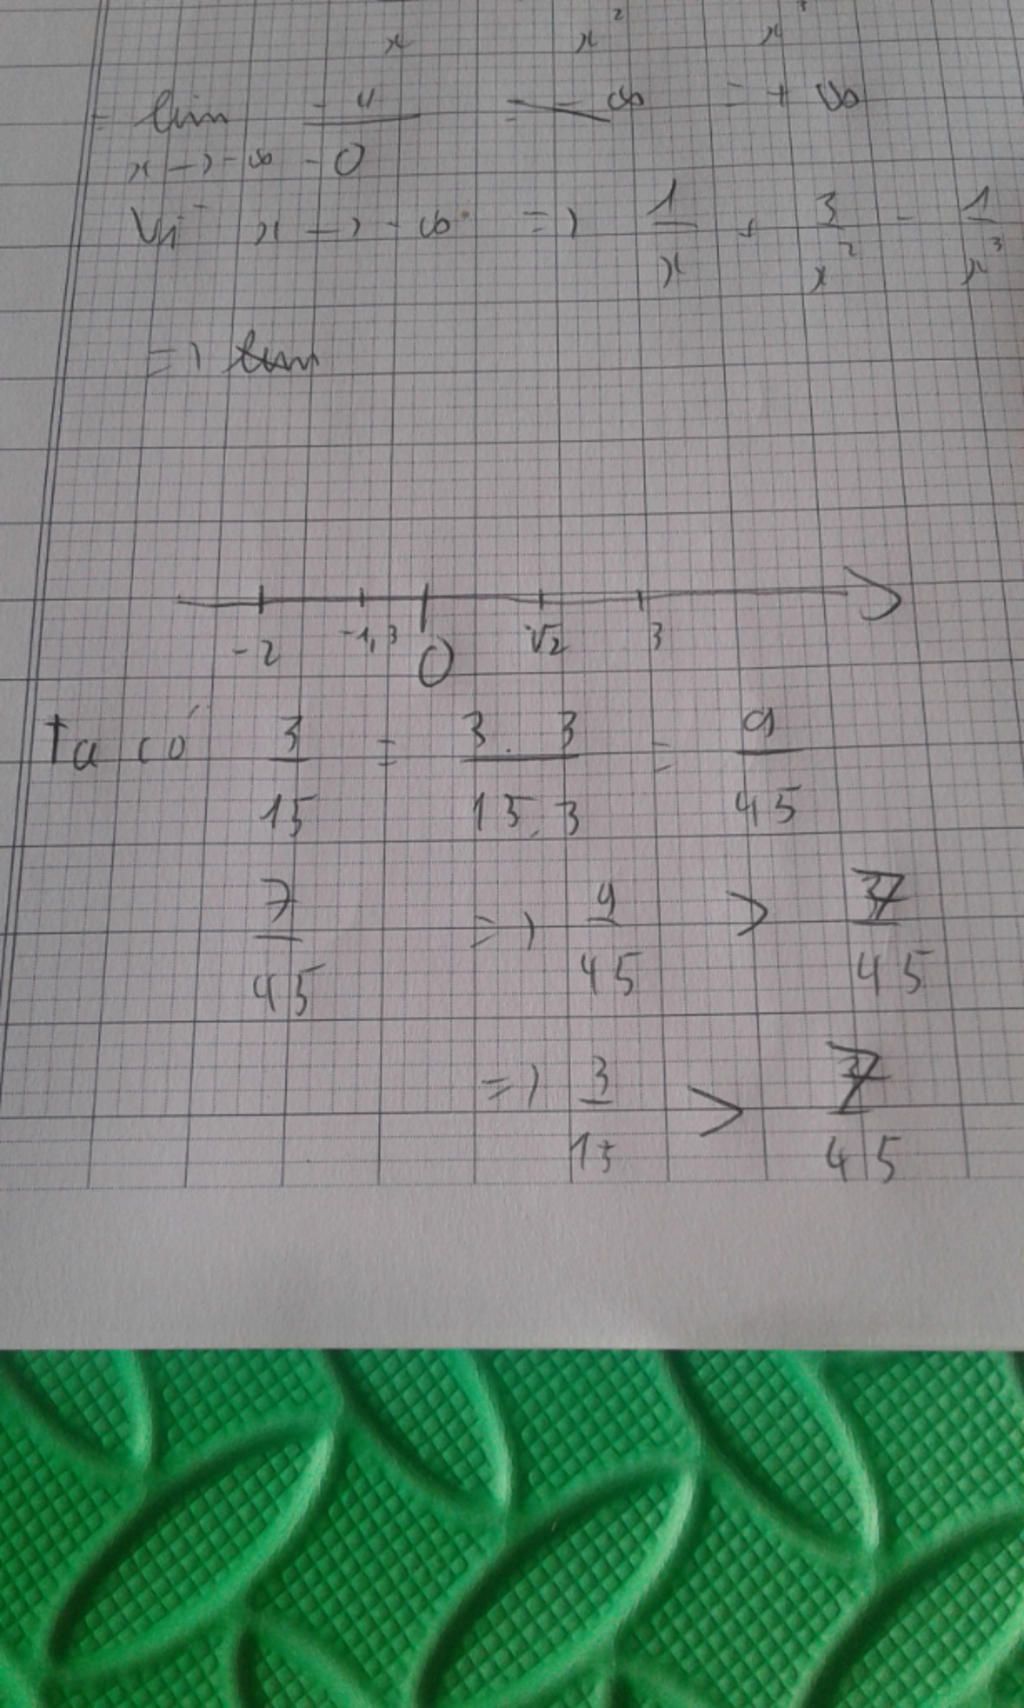 x x²
= lim -4/-0 = +∞
x -> -∞
Vì x -> -∞ => 1/x + 3/x² - 1/x³
=>
-2 -1,3 0 √2 3
Ta có 3/15 = 3.3/15.3 = 9/45
7/45 => 9/45 > 7/45
=> 3/15 > 7/45